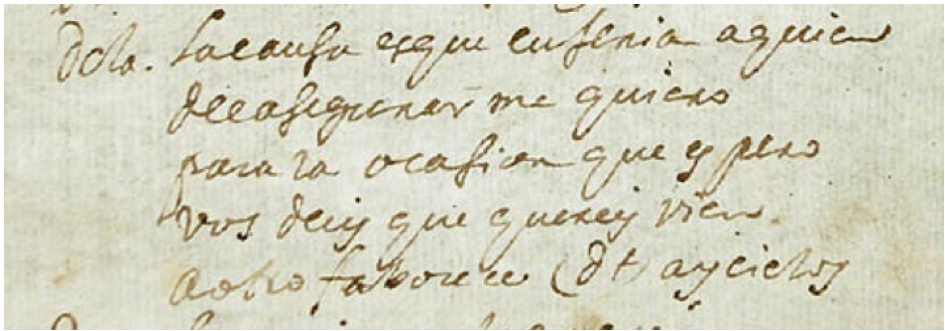 lacausa esque eufenia aquien
deeasegurarme quiero
para la ocasion que espero
vos deçis que quereis vien
aotro faborece (dt) ay cielos